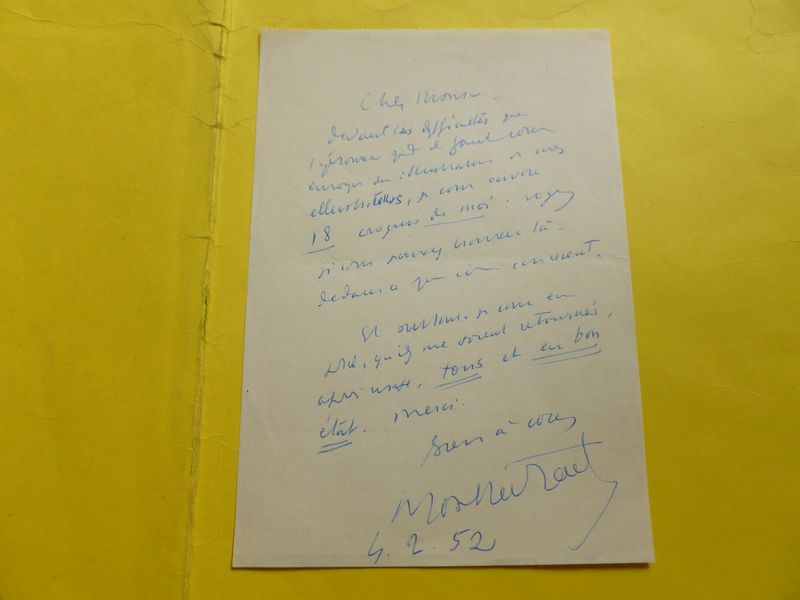 Cher Monsieur
devant les difficultés que
j'éprouve qd il faut vous
envoyer des illustrations
je vous envoie
18 croquis de moi. voyez
si vous pouvez trouver là-
dedans ce qui vous convient.
Et surtout, je vous en
prie, qu'ils me soient retournés,
après usage, tous et en bon
état. Merci.
Bien à vous
Montherlant
4. 2. 52